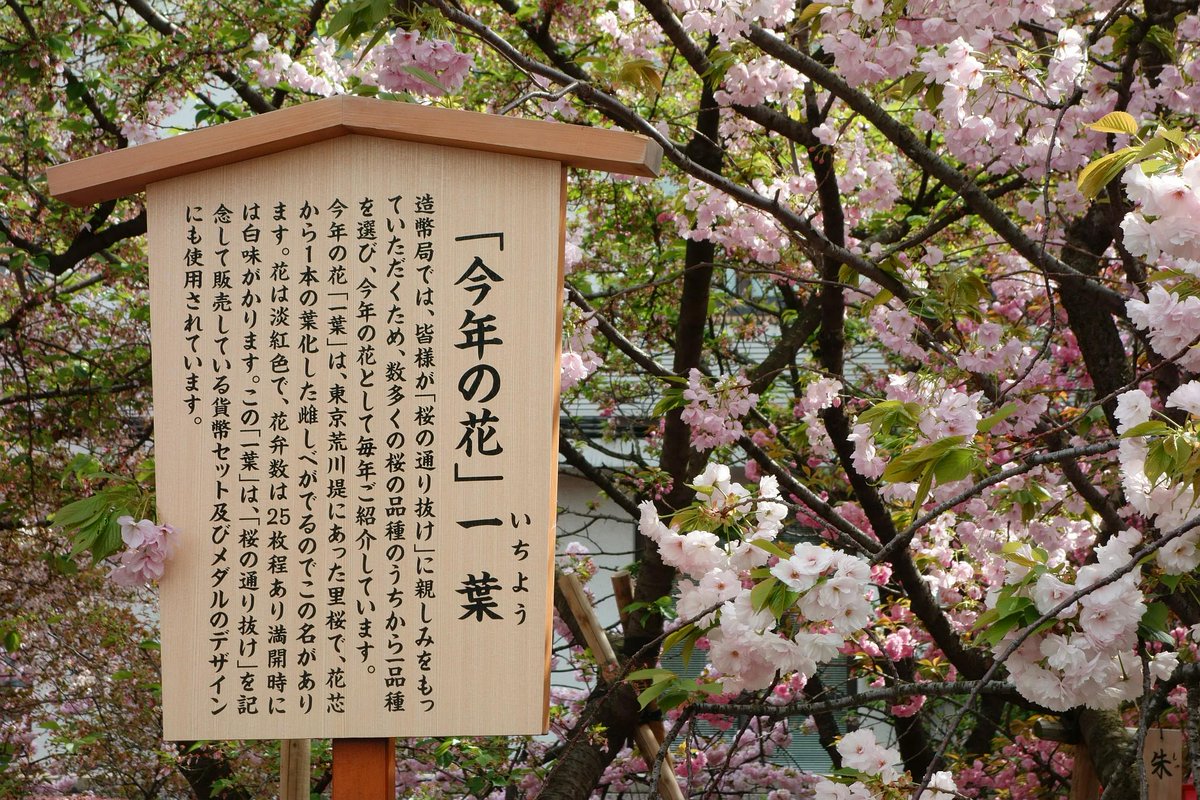 「今年の花」一葉
いちよう
造幣局では、皆様が「桜の通り抜け」に親しみをもっ
ていただくため、数多くの桜の品種のうちから一品種
を選び、今年の花として毎年ご紹介しています。
今年の花「一葉」は、東京荒川堤にあった里桜で、花芯
から1本の葉化した雌しべがでるのでこの名があり
ます。花は淡紅色で、花弁数は25枚程あり満開時に
は白味がかります。この「一葉」は、「桜の通り抜け」を記
念して販売している貨幣セット及びメダルのデザイン
にも使用されています。
朱